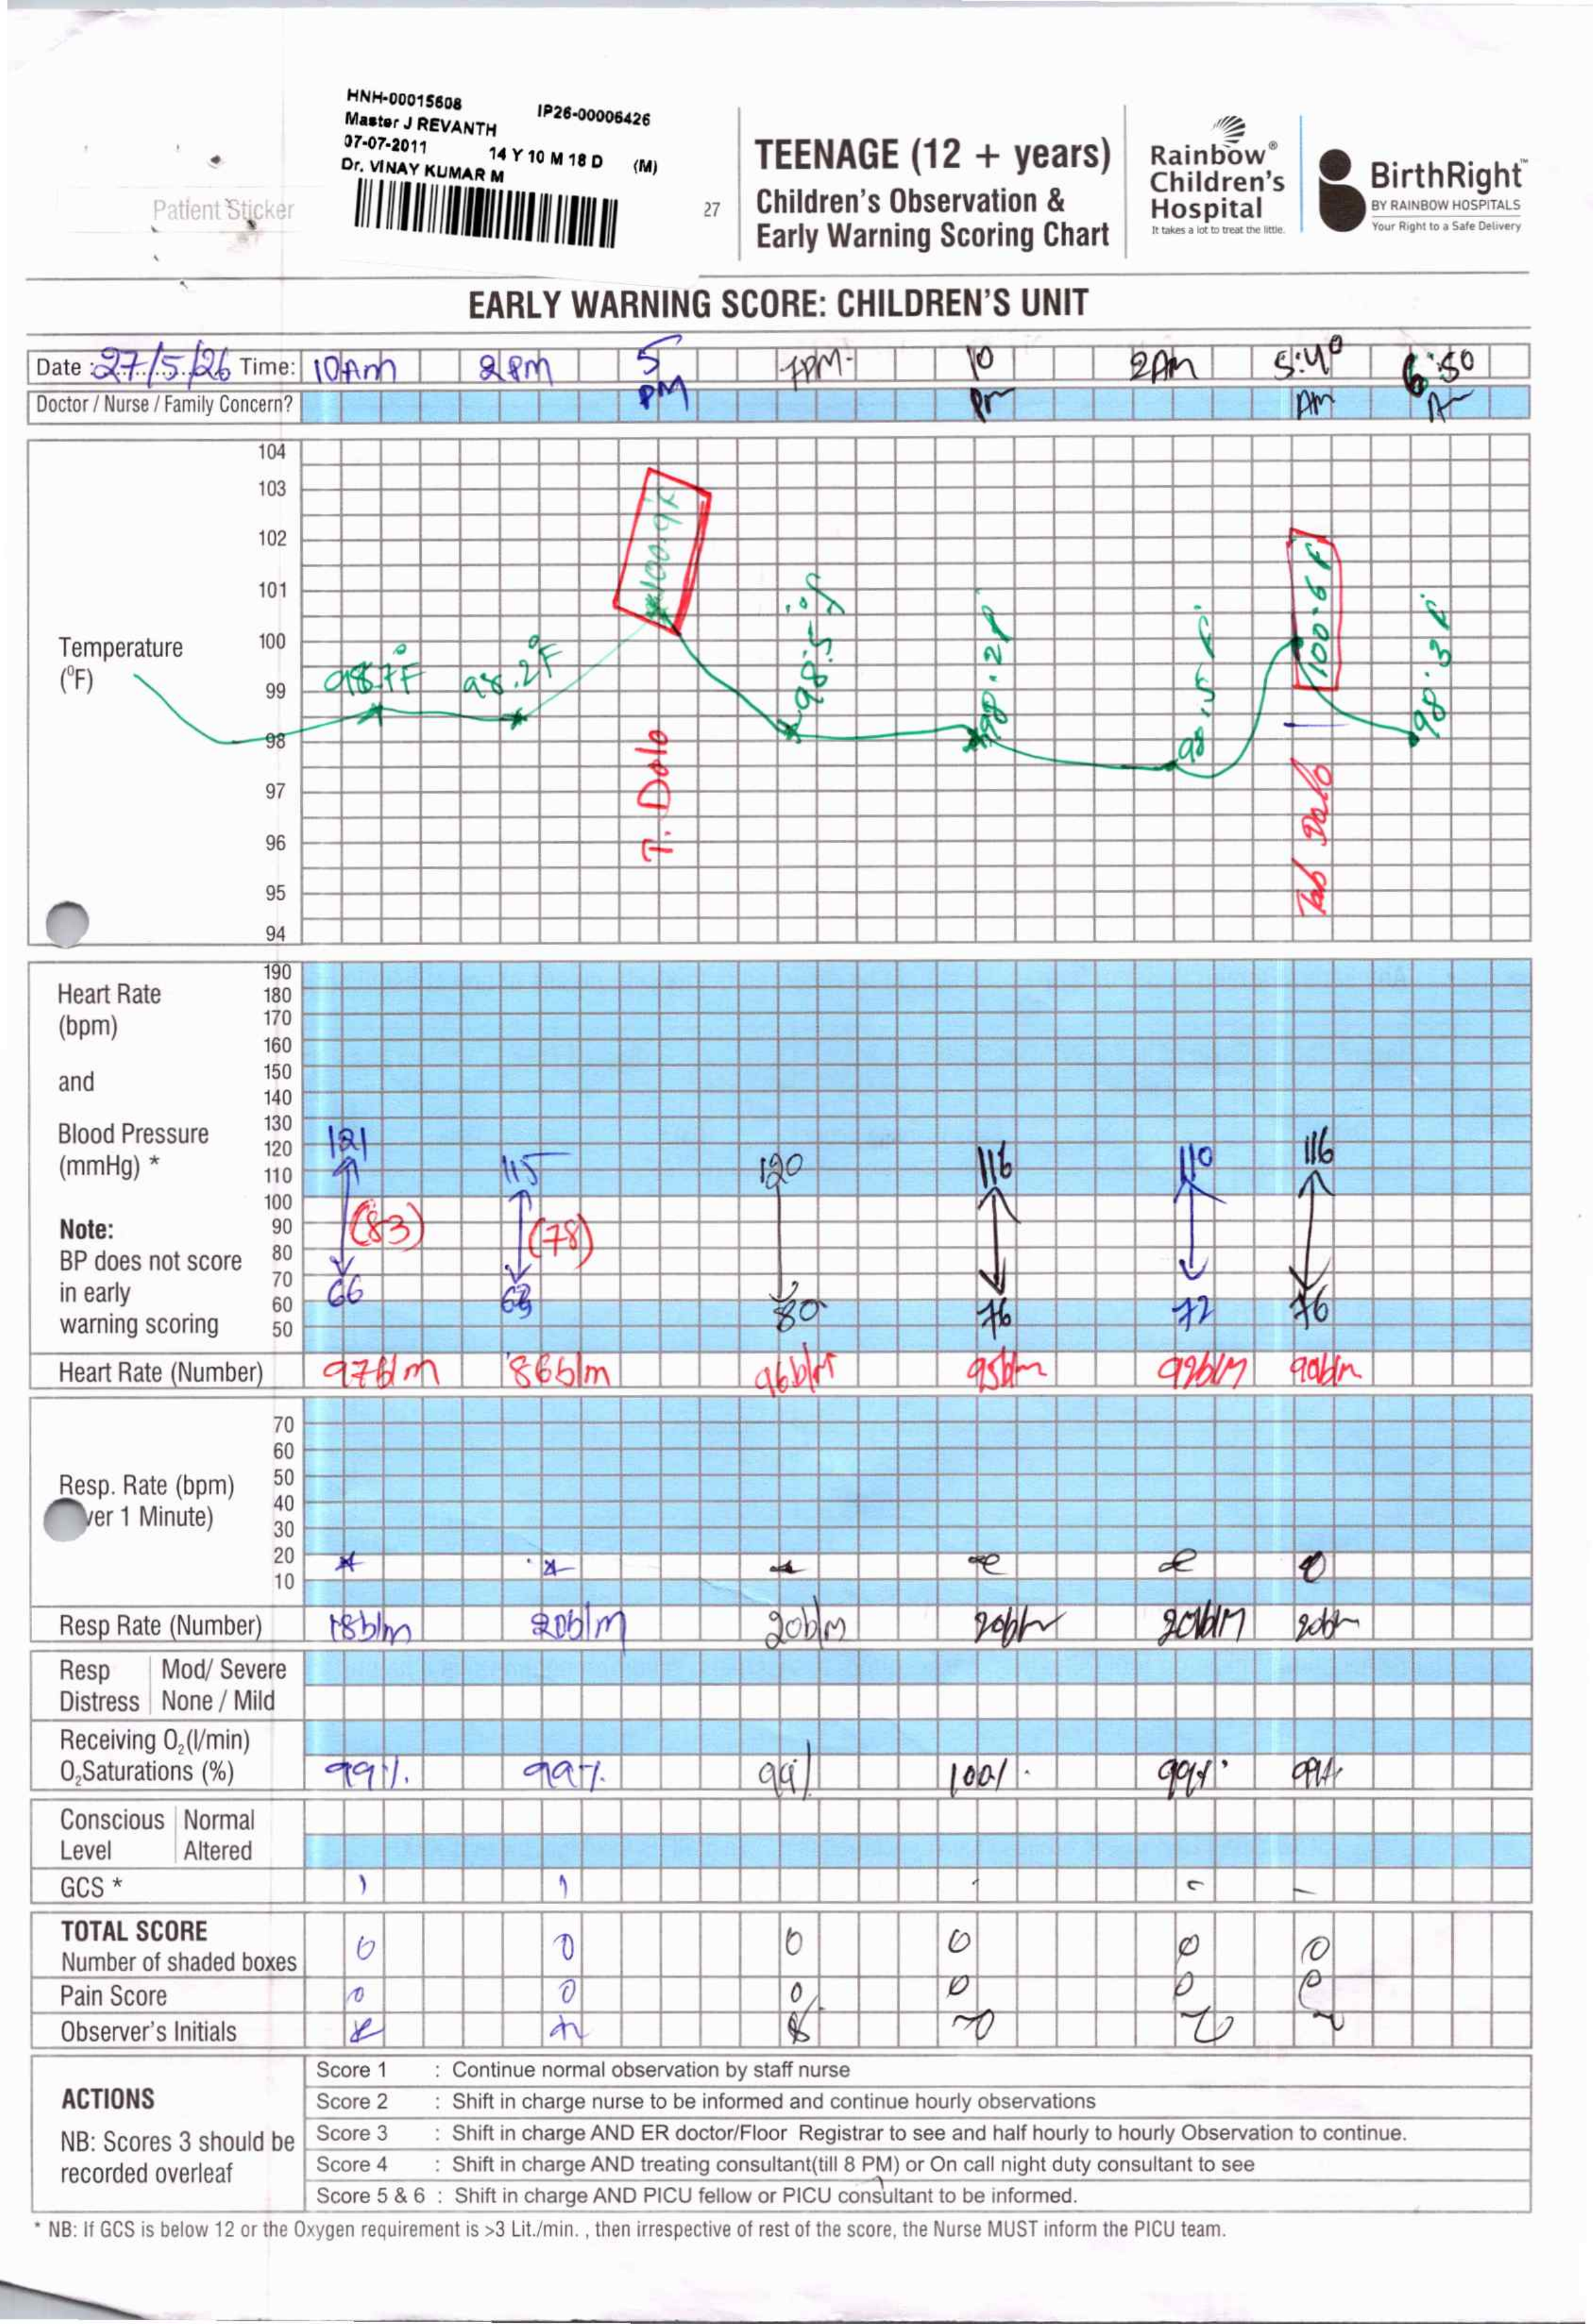 HNH-00015608 IP26-00006426
Master J REVANTH
07-07-2011 14 Y 10 M 18 D (M)
Dr. VINAY KUMAR M
Patient Sticker
27
TEENAGE (12 + years)
Children's Observation &
Early Warning Scoring Chart
Rainbow®
Children's
Hospital
It takes a lot to treat the little.
BirthRight™
BY RAINBOW HOSPITALS
Your Right to a Safe Delivery
EARLY WARNING SCORE: CHILDREN'S UNIT
Date : 27/5/26 Time: 10Am 2PM 5 PM 7PM 10 Pm 2AM 5:40 AM 6:50
Doctor / Nurse / Family Concern?
Temperature
(°F)
104
103
102
101
100
99
98
97
96
95
94
98.7°F 98.2°F 100.9F 98.5°F 98.2F 98.5F 100.6F 98.3F
T. Dolo
Tab Dolo
Heart Rate
(bpm)
and
Blood Pressure
(mmHg) *
Note:
BP does not score
in early
warning scoring
190
180
170
160
150
140
130
120
110
100
90
80
70
60
50
121 115 120 116 110 116
(83) (78)
66 80 76 72 76
Heart Rate (Number) 97b/m 86b/m 96b/m 95b/m 99b/M 90b/m
Resp. Rate (bpm)
ver 1 Minute)
70
60
50
40
30
20
10
Resp Rate (Number) 18b/m 20b/m 20b/m 20b/m 20b/M 20b/m
Resp Mod/ Severe
Distress None / Mild
Receiving O₂(l/min)
O₂Saturations (%) 99% 99% 99% 100% 99% 99%
Conscious Normal
Level Altered
GCS *
TOTAL SCORE
Number of shaded boxes 0 0 0 0 0 0
Pain Score 0 0 0 0 0 0
Observer's Initials
ACTIONS
NB: Scores 3 should be
recorded overleaf
Score 1 : Continue normal observation by staff nurse
Score 2 : Shift in charge nurse to be informed and continue hourly observations
Score 3 : Shift in charge AND ER doctor/Floor Registrar to see and half hourly to hourly Observation to continue.
Score 4 : Shift in charge AND treating consultant(till 8 PM) or On call night duty consultant to see
Score 5 & 6 : Shift in charge AND PICU fellow or PICU consultant to be informed.
* NB: If GCS is below 12 or the Oxygen requirement is >3 Lit./min. , then irrespective of rest of the score, the Nurse MUST inform the PICU team.